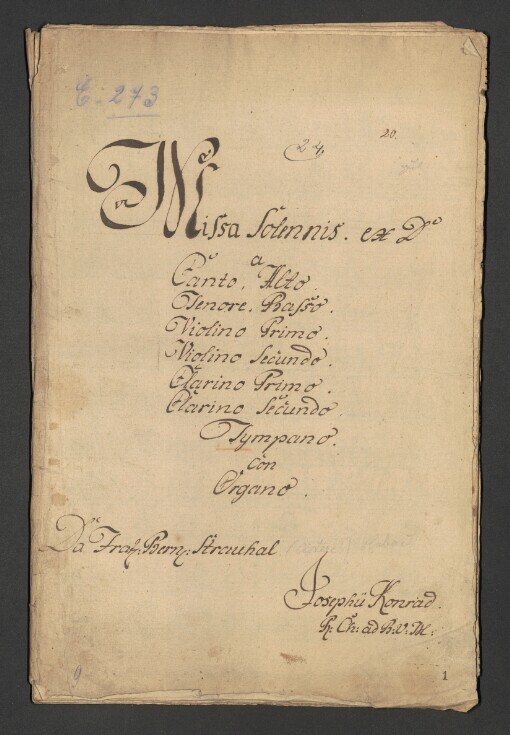 C. 273
24 20.
Missa Solennis. ex D.
a
Canto, Alto.
Tenore, Basso.
Violino Primo.
Violino Secundo.
Clarino Primo.
Clarino Secundo.
Tympano.
con
Organo.
Da Franz: Bern: Strauhal
Josephü Konrad.
R: Ch: ad B: V: M:
1